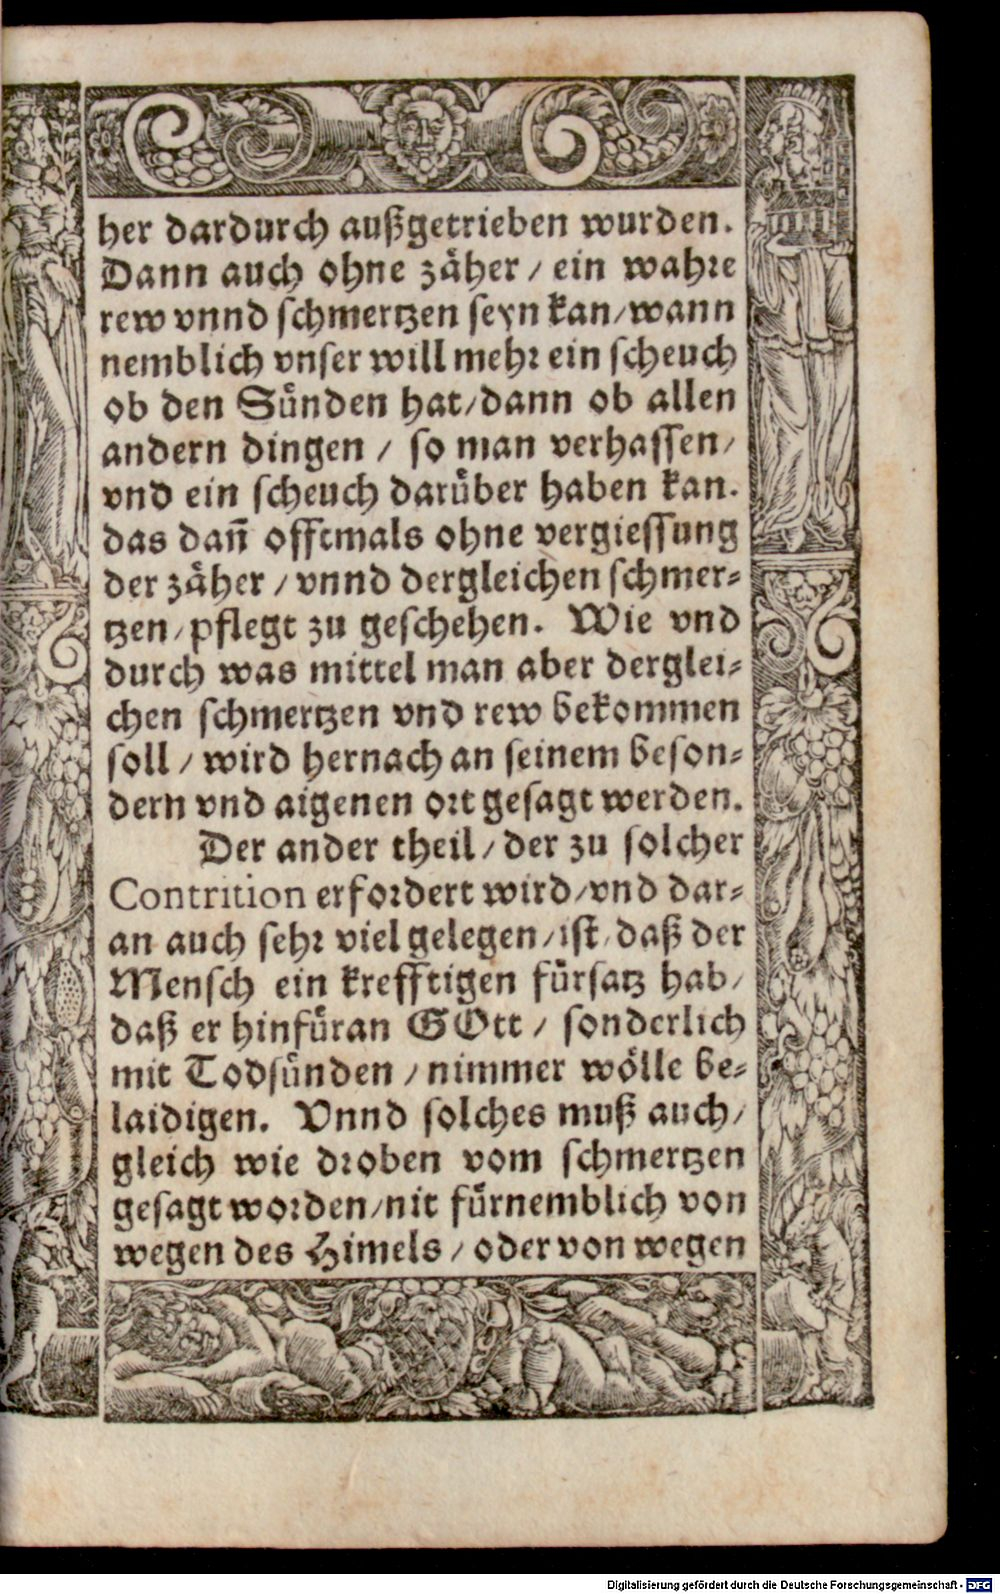 her dardurch außgetrieben wurden.
Dann auch ohne zäher / ein wahre
rew vnnd schmertzen seyn kan / wann
nemblich vnser will mehr ein scheuch
ob den Sünden hat / dann ob allen
andern dingen / so man verhassen /
vnd ein scheuch darüber haben kan.
das dañ offtmals ohne vergiessung
der zäher / vnnd dergleichen schmer-
tzen / pflegt zu geschehen. Wie vnd
durch was mittel man aber derglei-
chen schmertzen vnd rew bekommen
soll / wird hernach an seinem beson-
dern vnd aigenen ort gesagt werden.
Der ander theil / der zu solcher
Contrition erfordert wird / vnd dar-
an auch sehr viel gelegen / ist / daß der
Mensch ein krefftigen fürsatz hab /
daß er hinfüran GOtt / sonderlich
mit Todsünden / nimmer wölle be-
laidigen. Vnnd solches muß auch /
gleich wie droben vom schmertzen
gesagt worden / nit fürnemblich von
wegen des Himels / oder von wegen
Digitalisierung gefördert durch die Deutsche Forschungsgemeinschaft - DFG